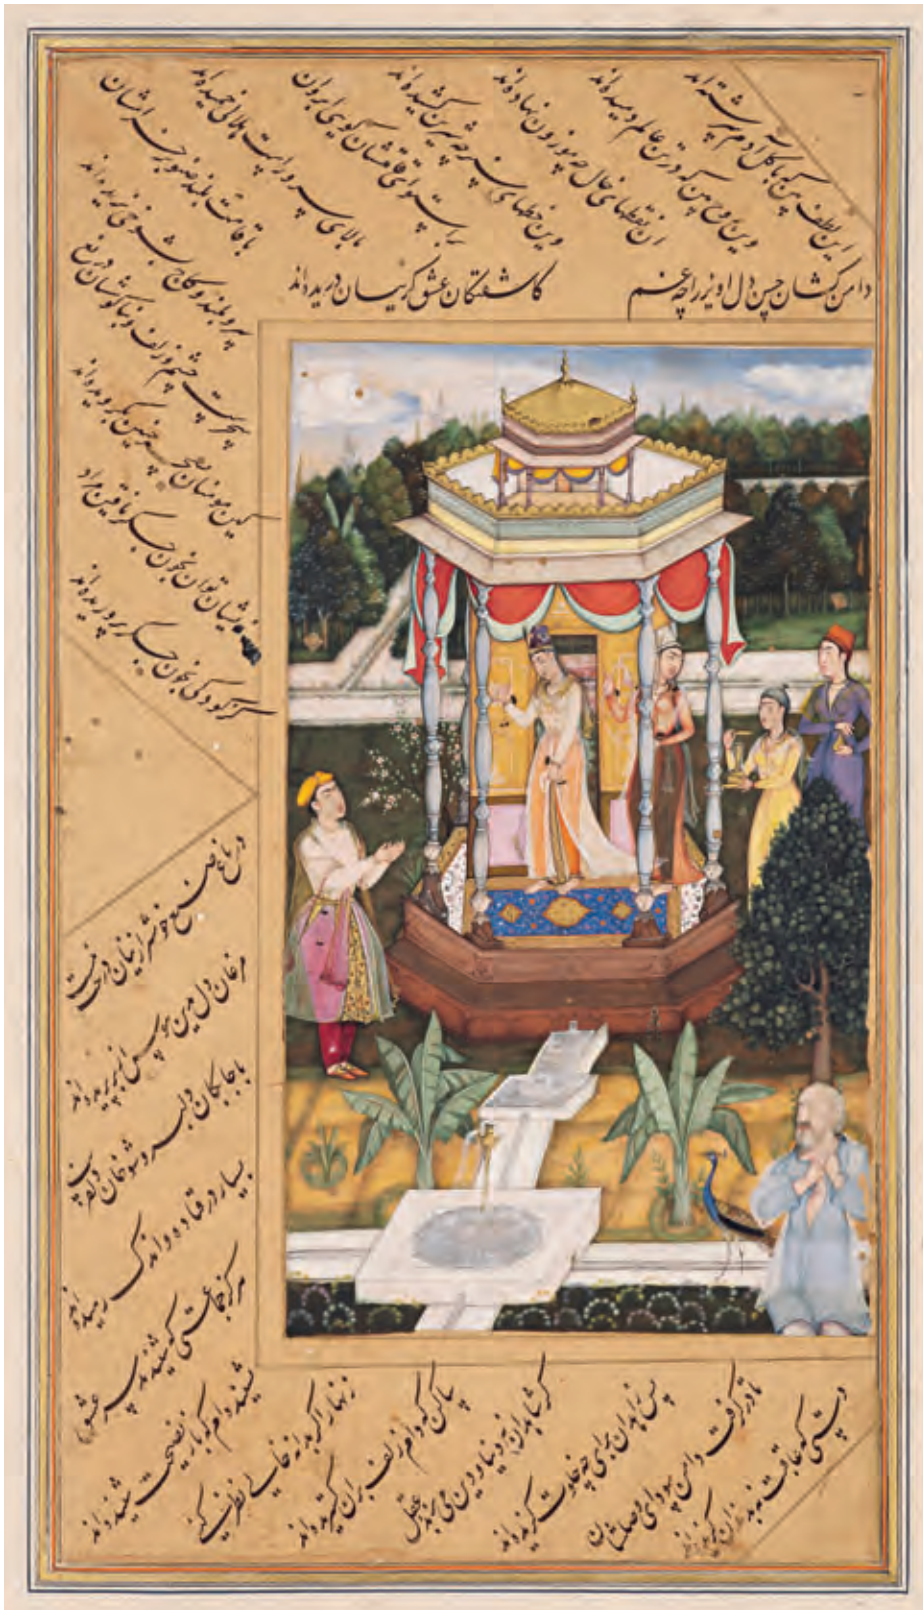 این لطف بین که با گل آدم سرشته اند
وین روح بین که در تن عالم دمیده اند
ان نقطهای خال چه موزون نهاده اند
وین خطهای سبز چه شیرین کشیده اند
بر استوای قامتشان گویی ابروان
بالای سرو راست هلالی خمیده اند
با قامت بلند صنوبر خرامشان
سرو بلند و کاج بشوخی چمیده اند
سحرست چشم و زلف و بناگوششان دریغ
کین مومنان بسحر چنین بگرویده اند
زیشان توان بخون جگر یافتن مراد
کز کودکی بخون جگر پروریده اند
دامن کشان حسن دل اویز را چه غم
کاشفتگان عشق گریبان دریده اند
در باغ صنع خوشتر ازینان درخت نیست
مرغان دل بدین هوس از بر پریده اند
با چابکان دلبر و شوخان دلفریب
بسیار درفتاده و اندک رهیده اند
هرگز جماعتی که شنیدند سر عشق
نشنیده ام که باز نصیحت شنیده اند
زنهار اگر بدانه خالی نظر کنی
ساکن که دام زلف بران گستریده اند
گر شاهدان نه دنیا و دین می برند و عقل
پس زاهدان برای چه خلوت گزیده اند
نادر گرفت دامن سودای وصلشان
دستی که عاقبت نه بدندان گزیده اند